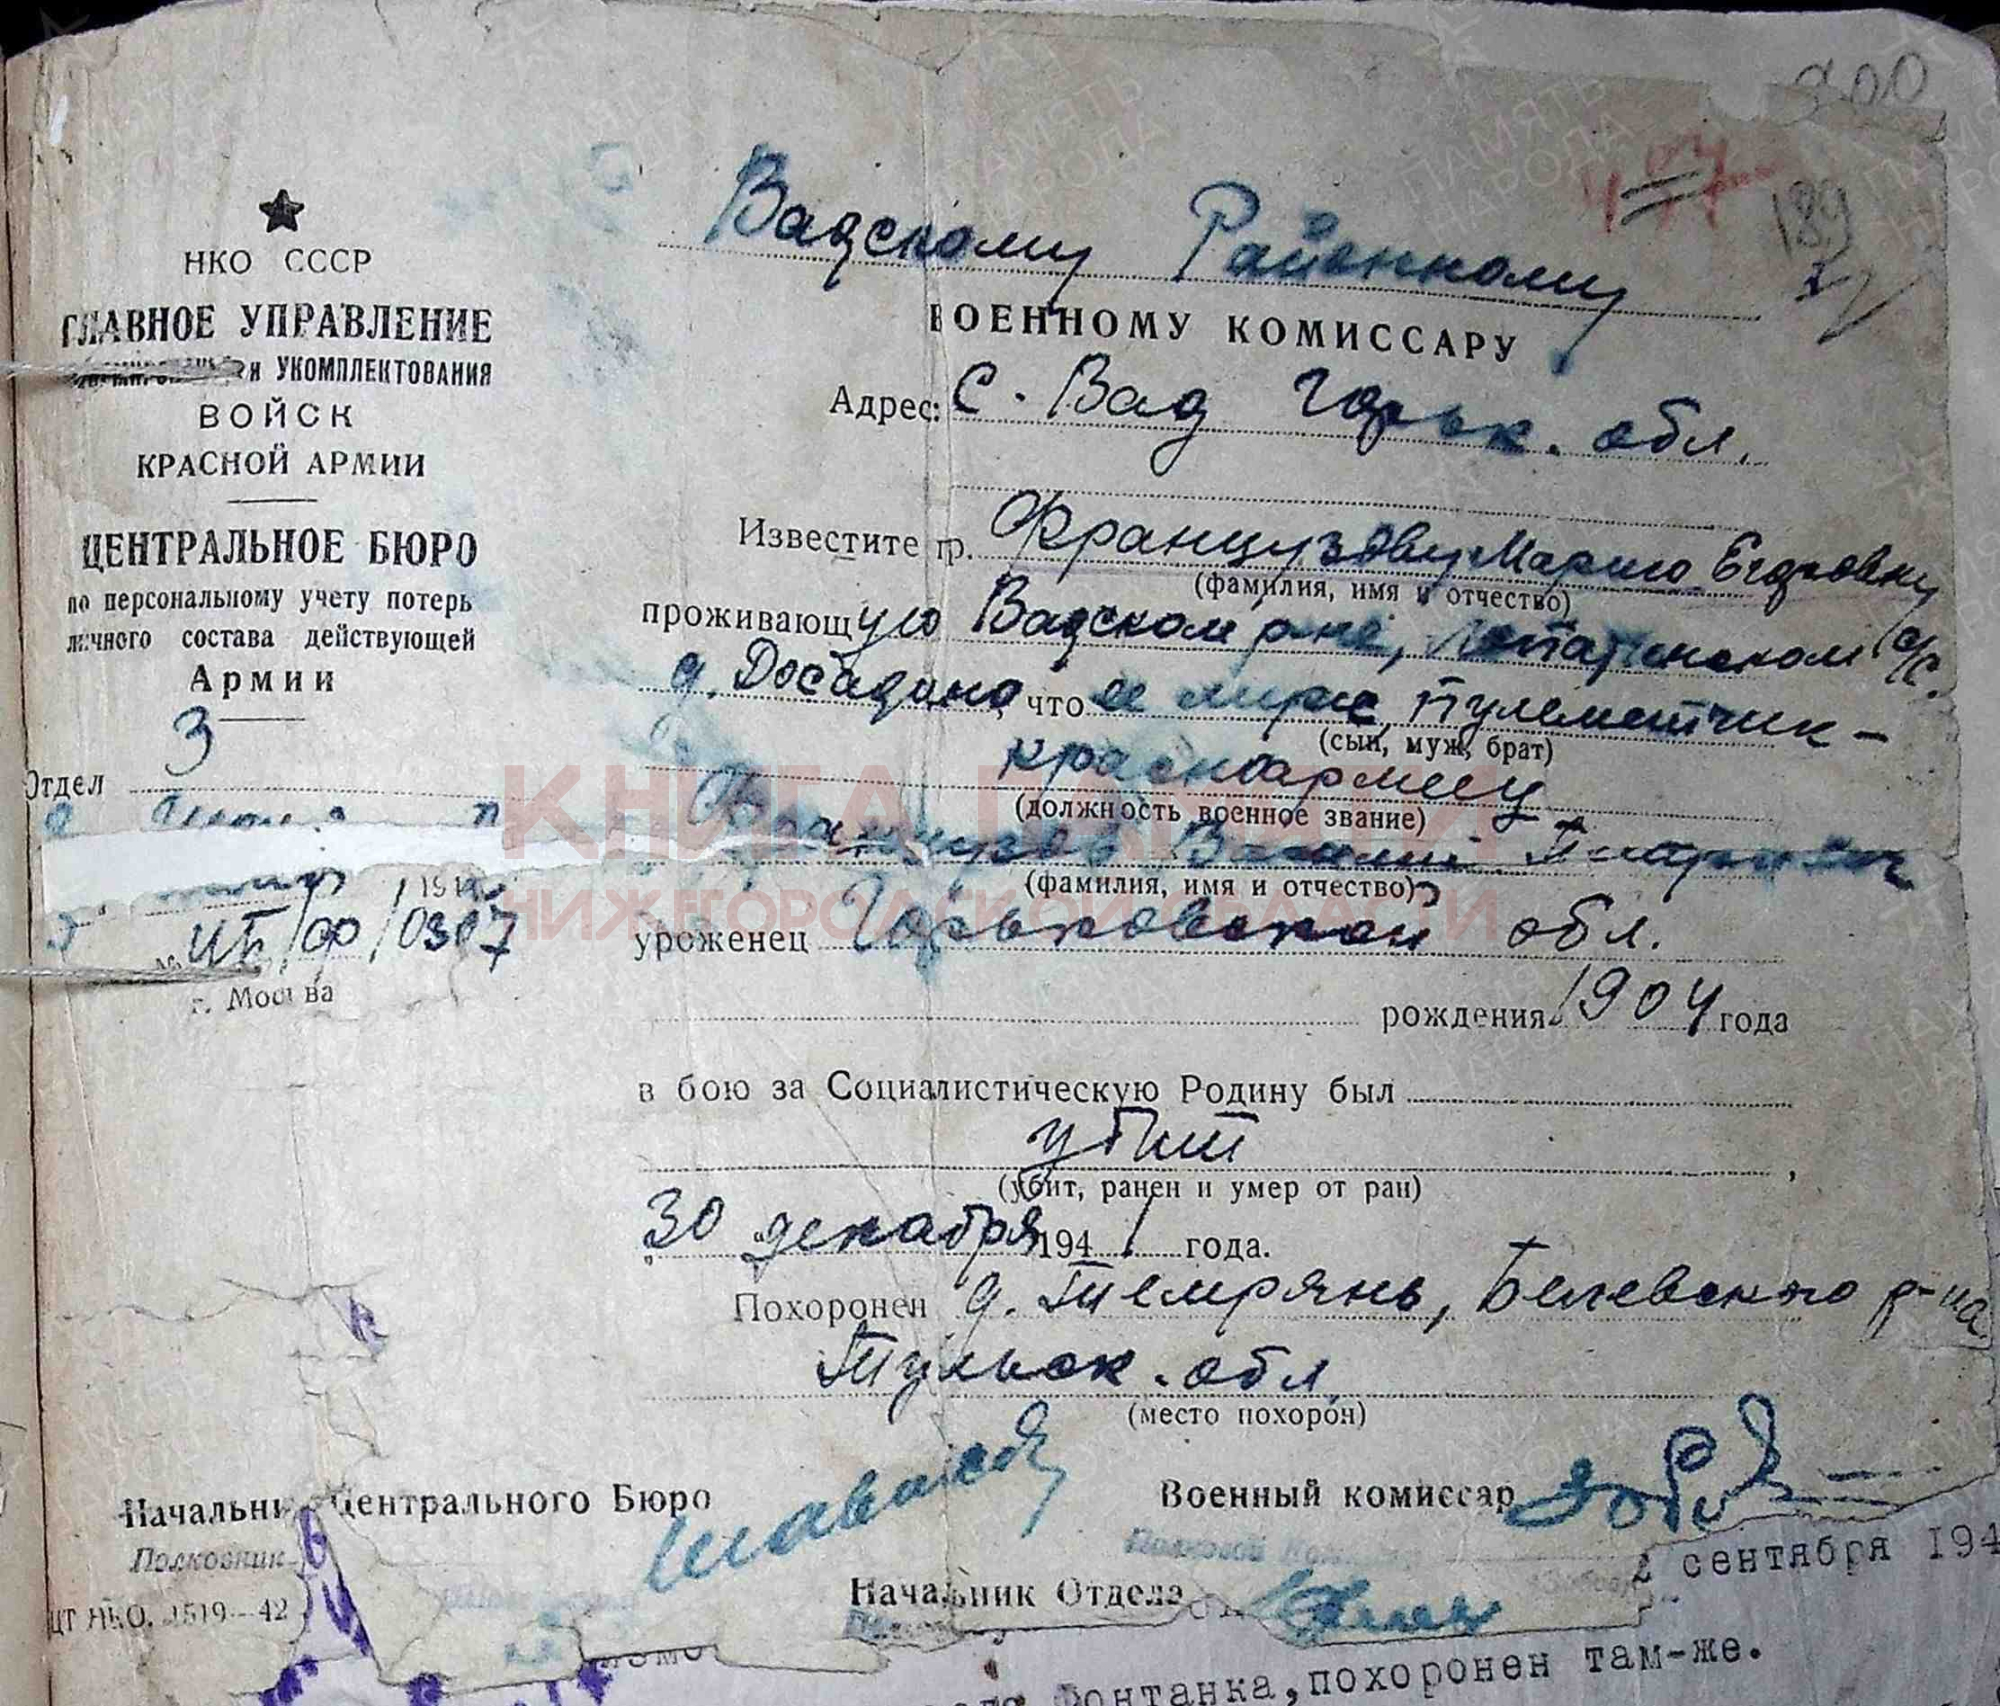 900
189
Вадскому Районному
ВОЕННОМУ КОМИССАРУ
Адрес: с. Вад Горьк. обл.
Известите гр. Французову Марию Егоровну
(фамилия, имя и отчество)
проживающую Вадском р-не, Лопатинском с/с.
д. Досадино, что ее муж пулеметчик-
(сын, муж, брат)
красноармеец
(должность военное звание)
Французов Василий
(фамилия, имя и отчество)
уроженец Горьковской обл.
рождения 1904 года
в бою за Социалистическую Родину был
убит
(убит, ранен и умер от ран)
30 декабря 1941 года.
Похоронен д. Темрянь, Белевского р-на
Тульск. обл.
(место похорон)
НКО СССР
ГЛАВНОЕ УПРАВЛЕНИЕ
и УКОМПЛЕКТОВАНИЯ
ВОЙСК
КРАСНОЙ АРМИИ
ЦЕНТРАЛЬНОЕ БЮРО
по персональному учету потерь
личного состава действующей
Армии
3
Отдел
№ ЦБ/ФФ/0307
г. Москва
Начальник Центрального Бюро
Полковник
Военный комиссар
Полковой Комиссар
Начальник Отдела
ЦТ НКО. 1519—42
сентября 194
Фонтанка, похоронен там-же.
КНИГА ПАМЯТИ
НИЖЕГОРОДСКОЙ ОБЛАСТИ
ПАМЯТЬ НАРОДА